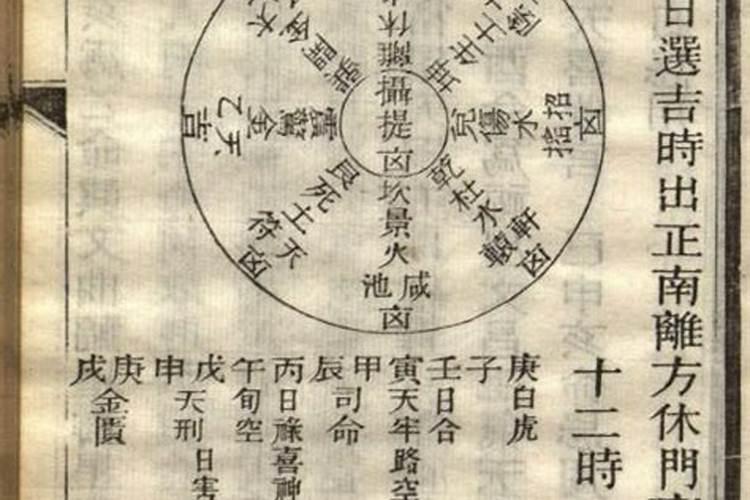 日選吉時出正南離方休門
十二時
庚子白虎
壬日合
寅天牢路空
甲辰司命
丙日祿喜神
午旬空
戊申天刑日害
庚戌金匱
離休
攝提凶
坎景火咸池凶
乾杜水軒轅凶
兌傷水招搖凶
生土
艮死土天符凶
震驚金天乙吉
巽開金